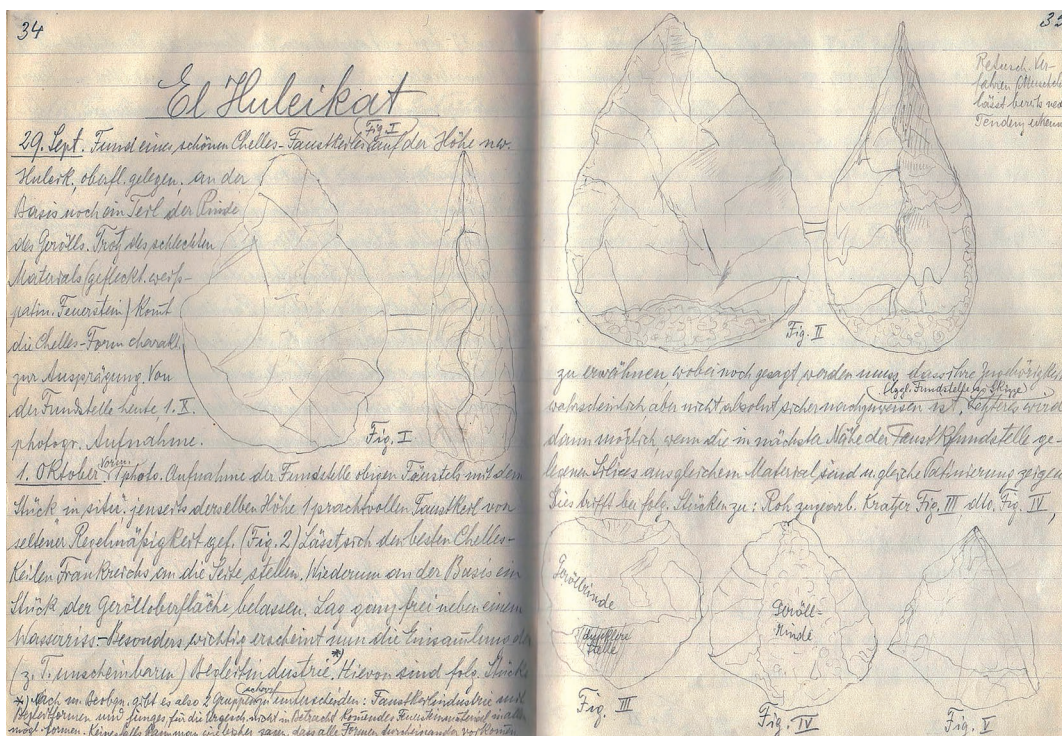 34
El Huleikat
29. Sept. Fund eines schönen Chelles-Faustkeiles (Fig I) auf der Höhe nw.
Huleik. oberfl. gelegen, an der
Basis noch ein Teil der Rinde
des Gerölls. Trotz des schlechten
Materials (gefleckt. weiß-
patin. Feuerstein) komt
die Chelles-Form charakt.
zur Ausprägung. Von
der Fundstelle heute 1. X.
photogr. Aufnahme.
Fig. I
1. Oktober Vorm. photo. Aufnahme der Fundstelle obigen Fäustels mit dem
Stück in situ; jenseits derselben Höhe 1 prachtvollen Faustkeil von
seltener Regelmäßigkeit gef. (Fig. 2) Lässt sich den besten Chelles-
Keilen Frankreichs an die Seite stellen. Wiederum an der Basis ein
Stück der Gerölloberfläche belassen. Lag ganz frei neben einem
Wasserriss - Besonders wichtig erscheint nun die Einsammlung der
(z. T. unscheinbaren) Begleitindustrie *). Hievon sind folg. Stücke
*) Nach m. Beobgn. gibt es also 2 Gruppen zu unterscheiden: Faustkeilindustrie mit
Begleitformen und für die Urgesch. nicht in Betracht komendes Feuersteinmaterial in allen
mögl. Formen. Keinesfalls kann man wie bisher sagen, dass alle Formen durcheinander vorkomen
Retusch. Ver-
fahren
lässt bereits
Tendenz
Fig. II
zu erwähnen, wobei noch gesagt werden muss, dass ihre Zugehörigkeit
(bzgl. Fundstelle Skizze)
wahrscheinlich aber nicht absolut sicher nachzuweisen ist. Letzteres wird
dann möglich, wenn die in nächster Nähe der Faustk.fundstelle ge-
legenen Silices aus gleichem Material sind u. gleiche Patinierung zeigen
Dies trifft bei folg. Stücken zu: Roh zugearb. Kratzer Fig. III dto. Fig. IV,
Geröllrinde
dunklere
Stelle
Geröll-
Rinde
Fig. III
Fig. IV
Fig. V